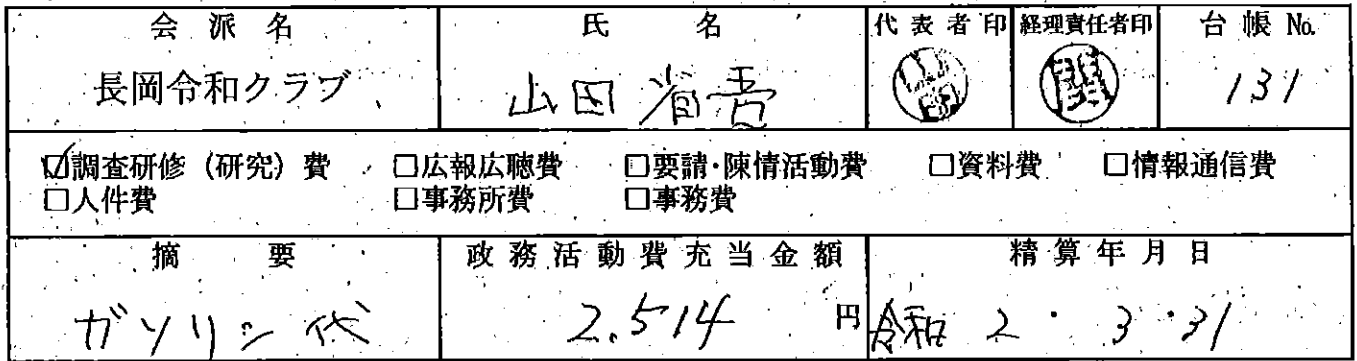 会派名 氏名 代表者印 経理責任者印 台帳No.
長岡令和クラブ 山田省吾 関 131
☑調査研修(研究)費 □広報広聴費 □要請・陳情活動費 □資料費 □情報通信費
□人件費 □事務所費 □事務費
摘要 政務活動費充当金額 精算年月日
ガソリン代 2,514円 令和2・3・31